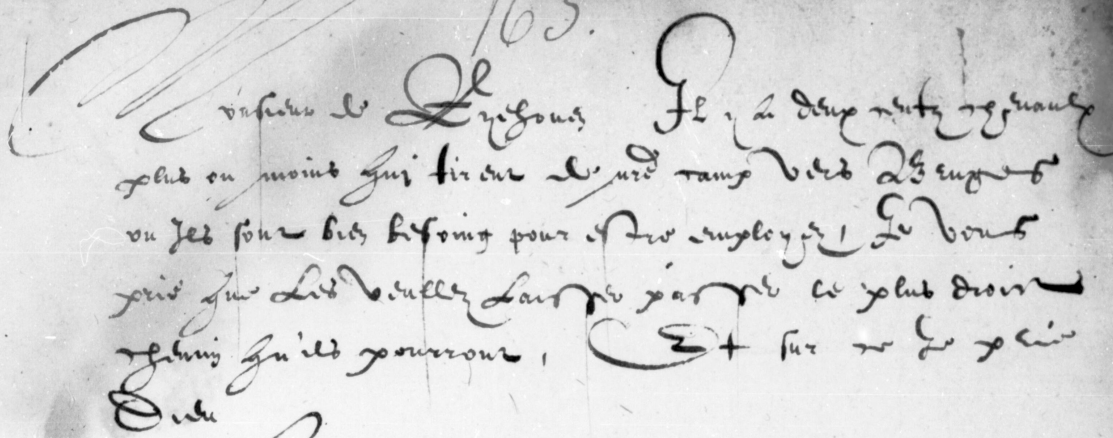 163.
Monsieur de Il y a deux centz chevaulx
plus ou moins qui tirent de nre camp vers Bruges
ou Ils sont bien besoing pour estre employez, Je vous
prie que Les veullez Laisser passer le plus droict
chemin qu'ils pourront, Et sur ce Je prie
Dieu